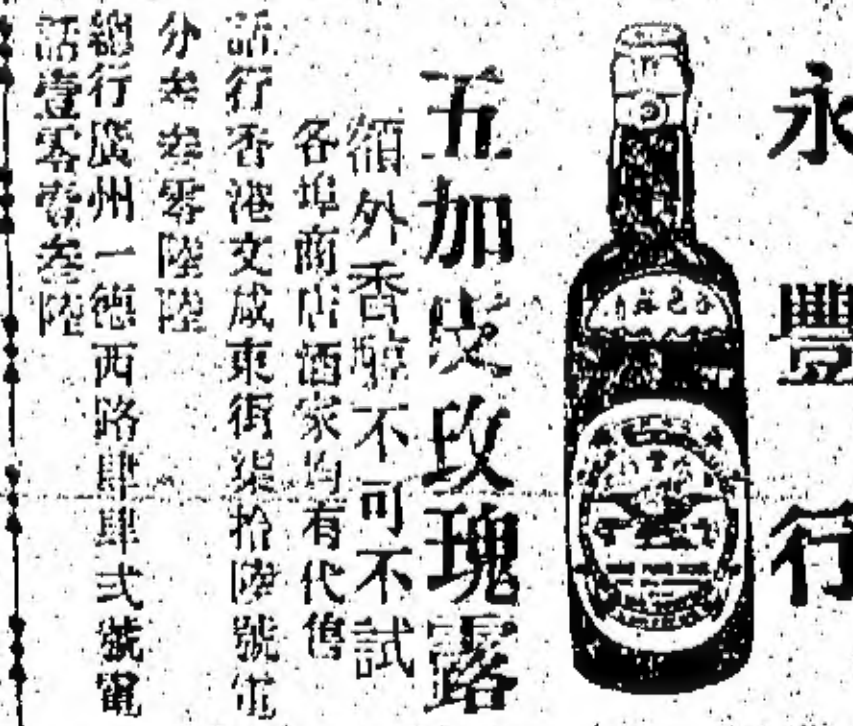 永豐行
五加皮玫瑰露
額外香醇不可不試
各埠商店酒家均有代售
話行香港文咸東街柒拾陸號電
分叁叁零陸陸
總行廣州一德西路肆肆弍號電
話壹零壹叁陸